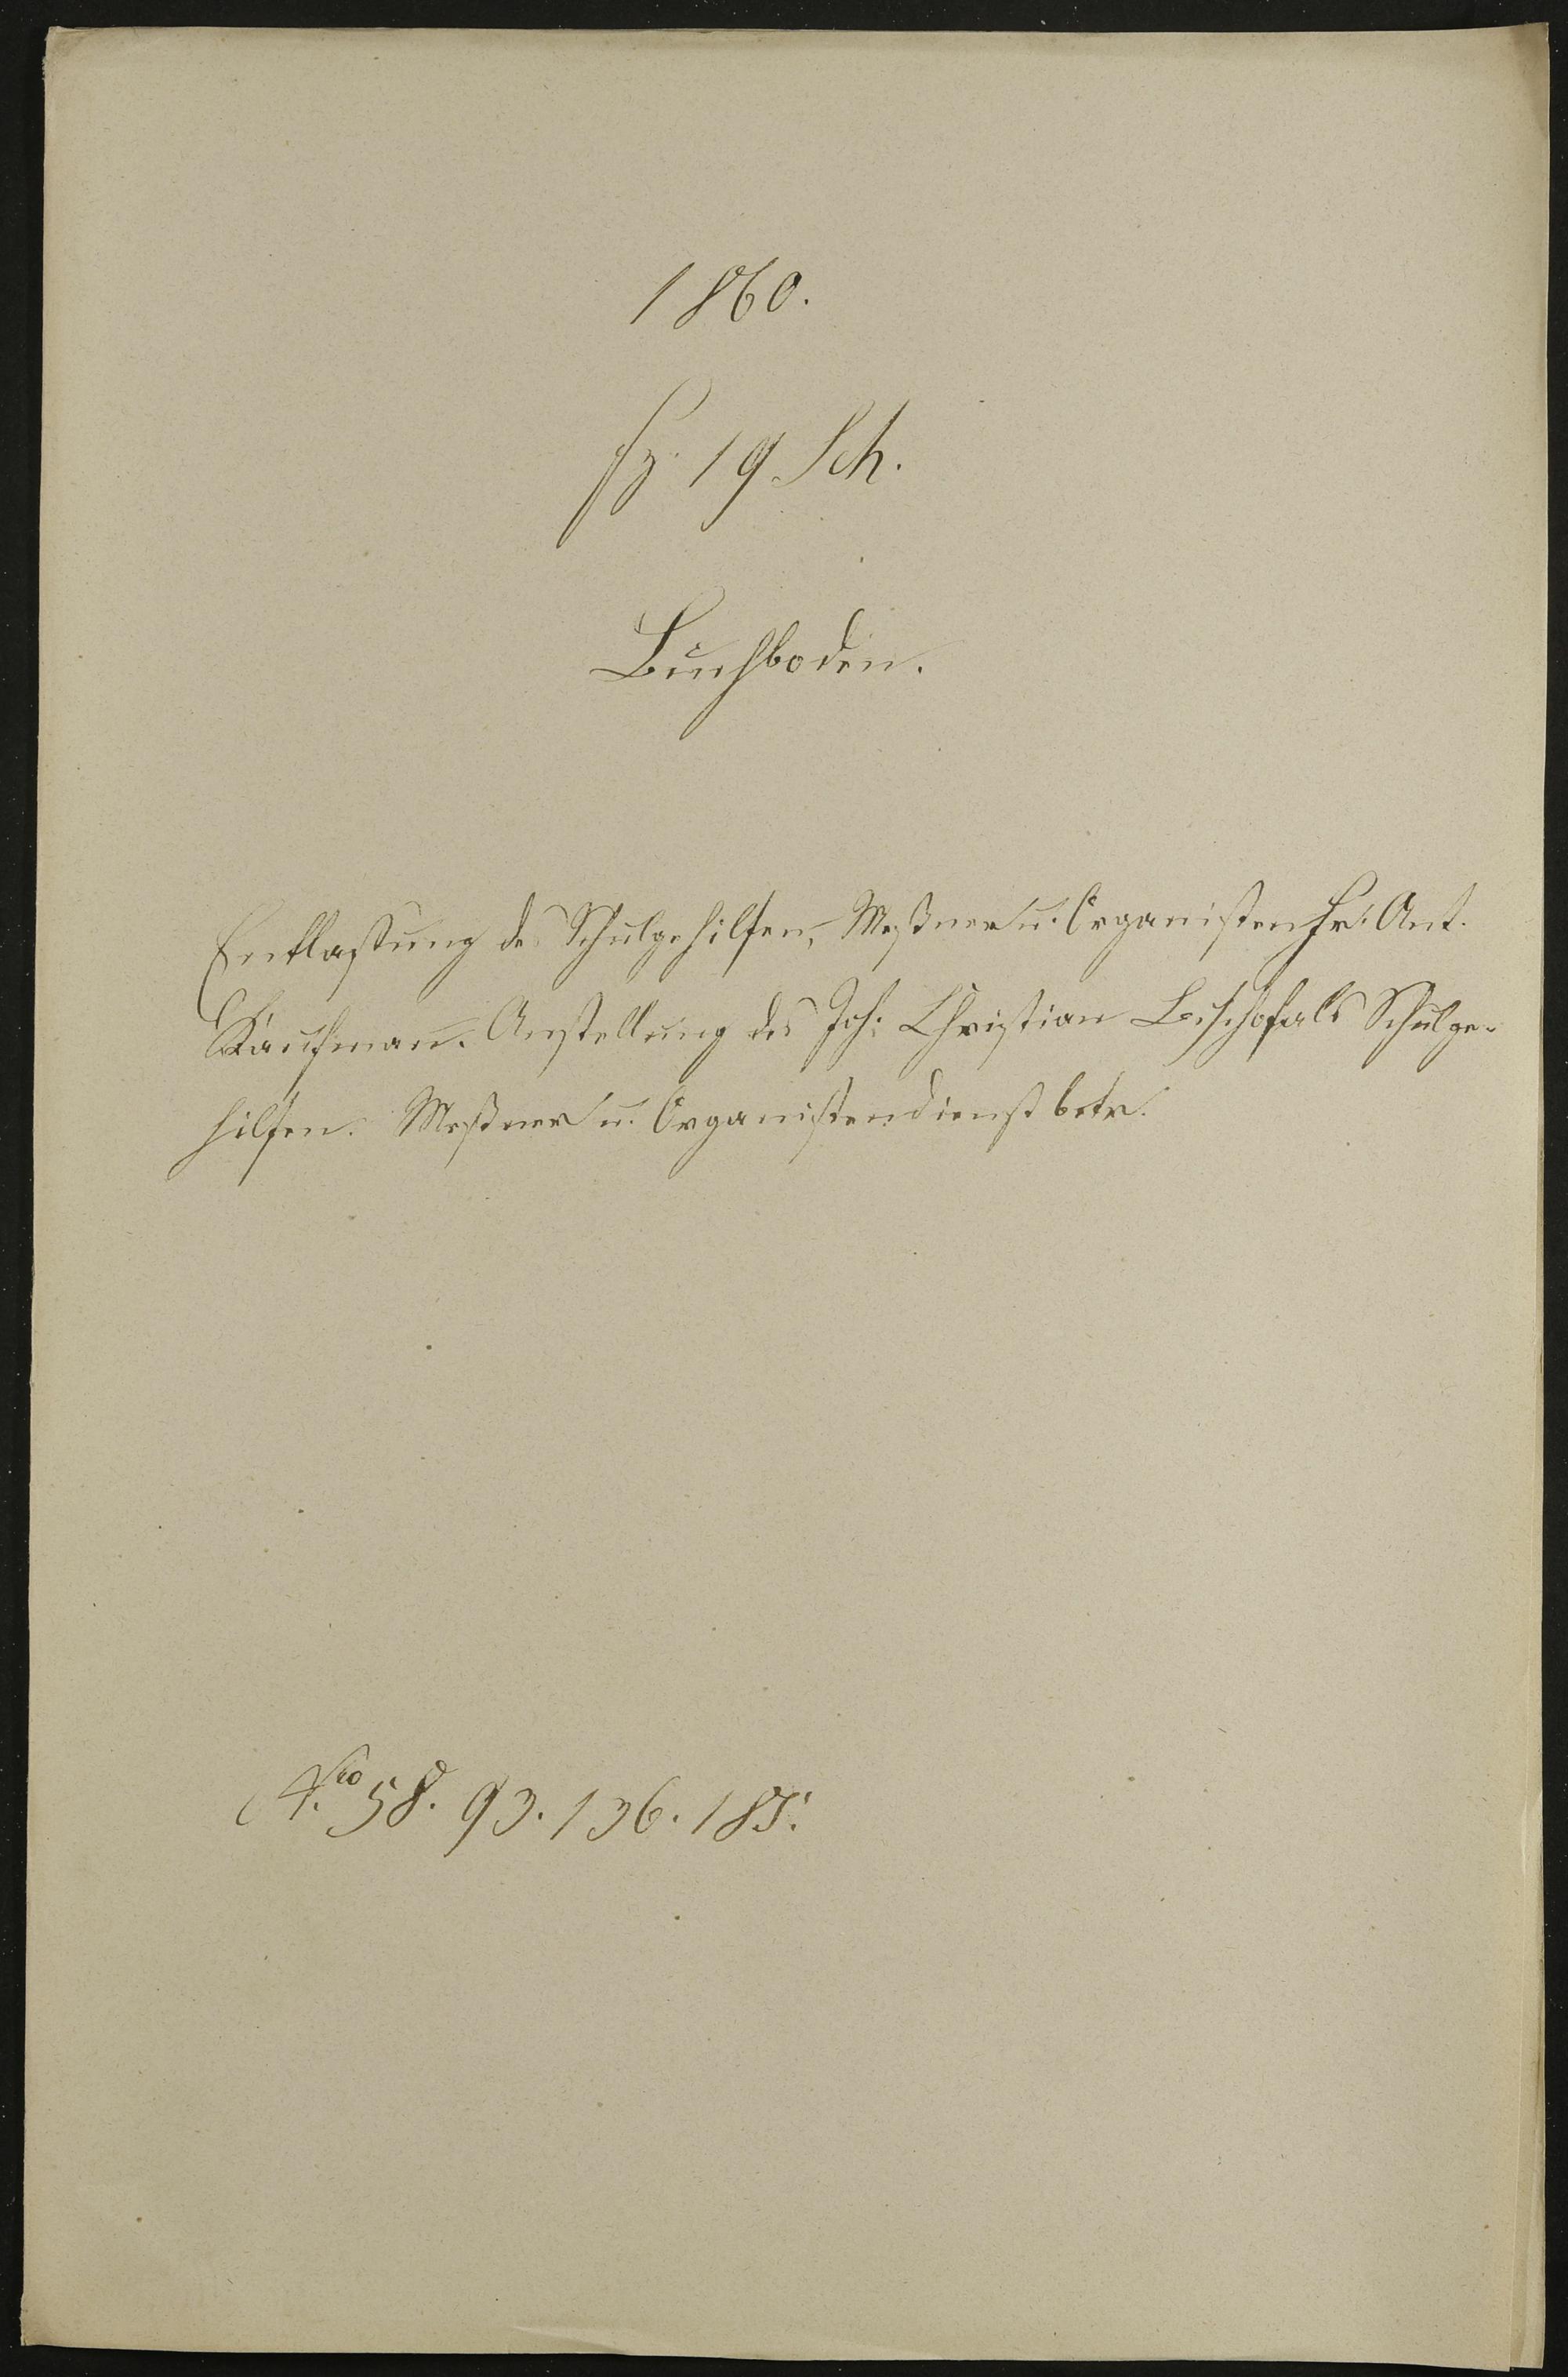 1860.
fz. 19 Sch.
Buchboden.
Entlassung des Schulgehilfen, Meßner u. Organisten Fr: Ant.
Kaufmann. Anstellung des Joh: Christian Bischof als Schulge-
hilfen. Meßner u. Organistendienst betr.
Nro 58. 93. 136. 185.